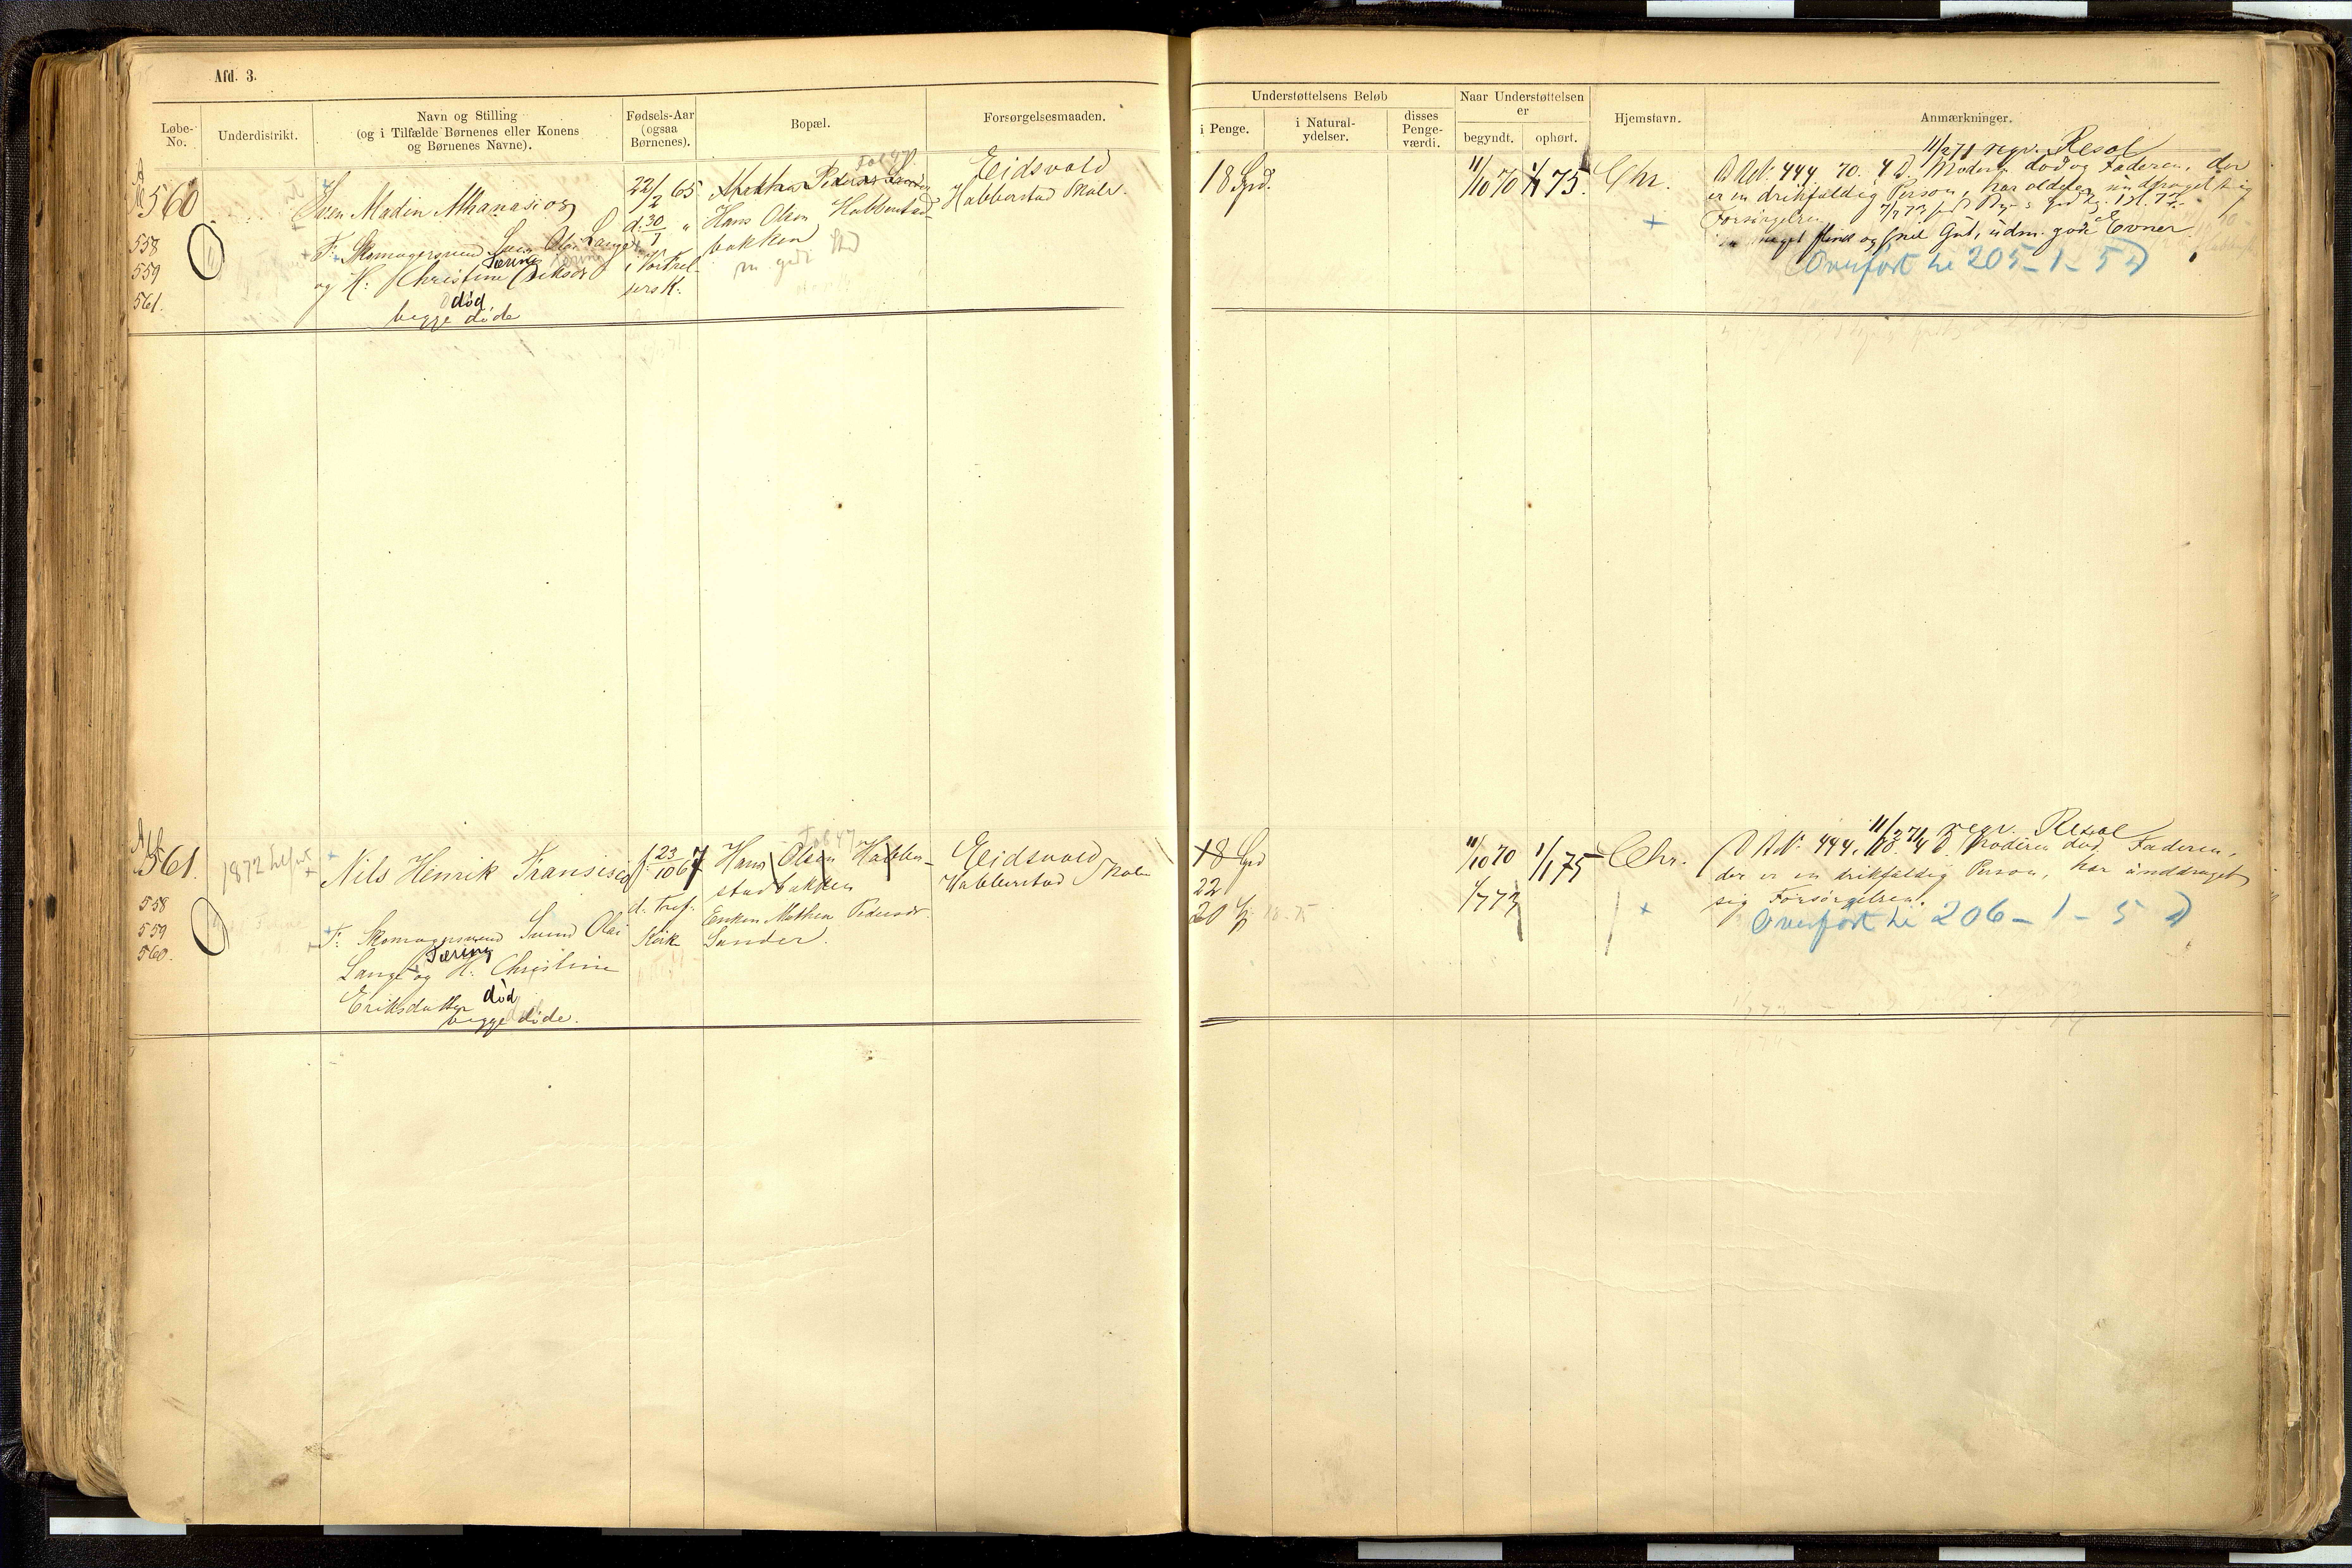 Afd. 3.
Løbe-No.
Underdistrikt.
Navn og Stilling
(og i Tilfælde Børnenes eller Konens
og Børnenes Navne).
Fødsels-Aar
(ogsaa
Børnenes).
Bopæl.
Forsørgelsesmaaden.
Understøttelsens Beløb
i Penge.
i Natural-
ydelser.
disses
Penge-
værdi.
Naar Understøttelsen
er
begyndt.
ophørt.
Hjemstavn.
Anmærkninger.
560
558
559
561.
Madin Athanasios
F: Skomagersvend Lange
Tæring
og H: Christine
død
begge døde
22/2 65
d: 30/7 "
Hans Olsen Habberstad-
bakken
Eidsvold
Habberstad Skole.
18 Spd.
11/10 70
75.
Chr.
11/2 71 regr. Resol
444 70. 4 D. Moderen død og Faderen, der
er en drikfældig Person, har
Forsørgelsen
meget flink og snil Gut, udm. gode Evner
Overført til 205-1-5 D
561.
558
559
560.
1872
Nils Henrik Fransisco
F: Skomagersvend Svend Olai
Tæring
Lange og H: Christine
Eriksdatter død
begge døde.
f. 23/10 67
d. Tref.
Kirk
Hans Olsen Habber-
stadbakken
Enken Mathea Pedersdr.
Sander.
Eidsvold
Habberstad Skole
18 Spd
22
20
11/10 70
1/7 73
1/1 75
Chr.
11/2 71 regr. Resol
444. 70. 4 D Moderen død Faderen,
der er en drikfældig Person, har unddraget
sig Forsørgelsen.
Overført til 206-1-5 D